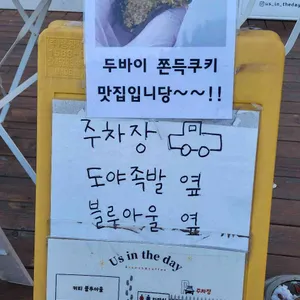 @us_in_the_day
두바이 쫀득쿠키
맛집입니당~~!!
주차장
도야족발 옆
블루아울 옆
Us in the day
카페 블루아울
주차장